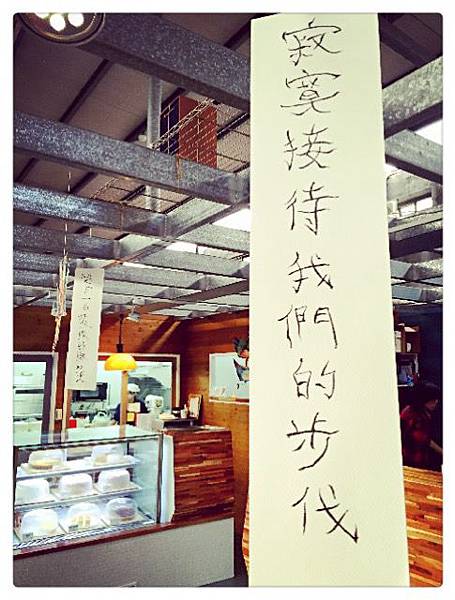 寂寞接待我們的步伐